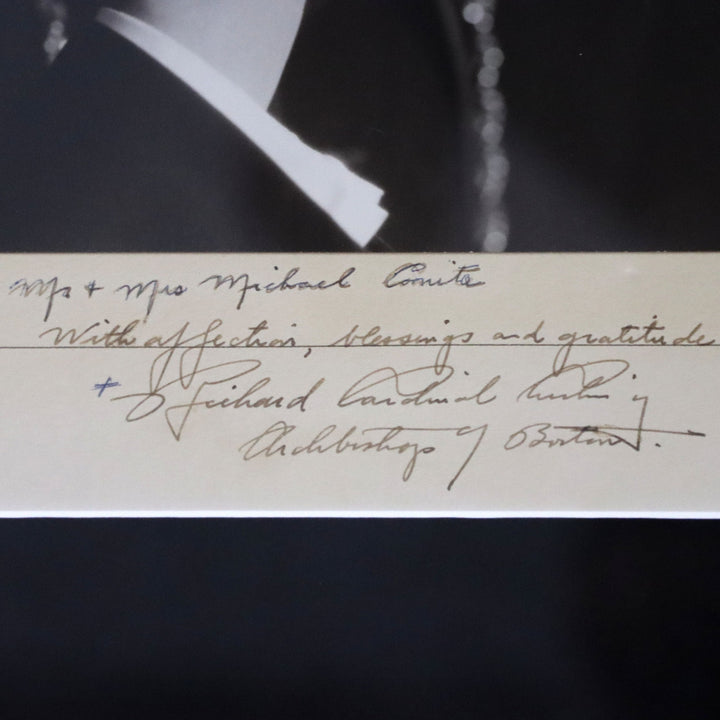 Mr + Mrs Michael Comita
With affection, blessings and gratitude
+ Richard Cardinal Cushing
Archbishop of Boston.